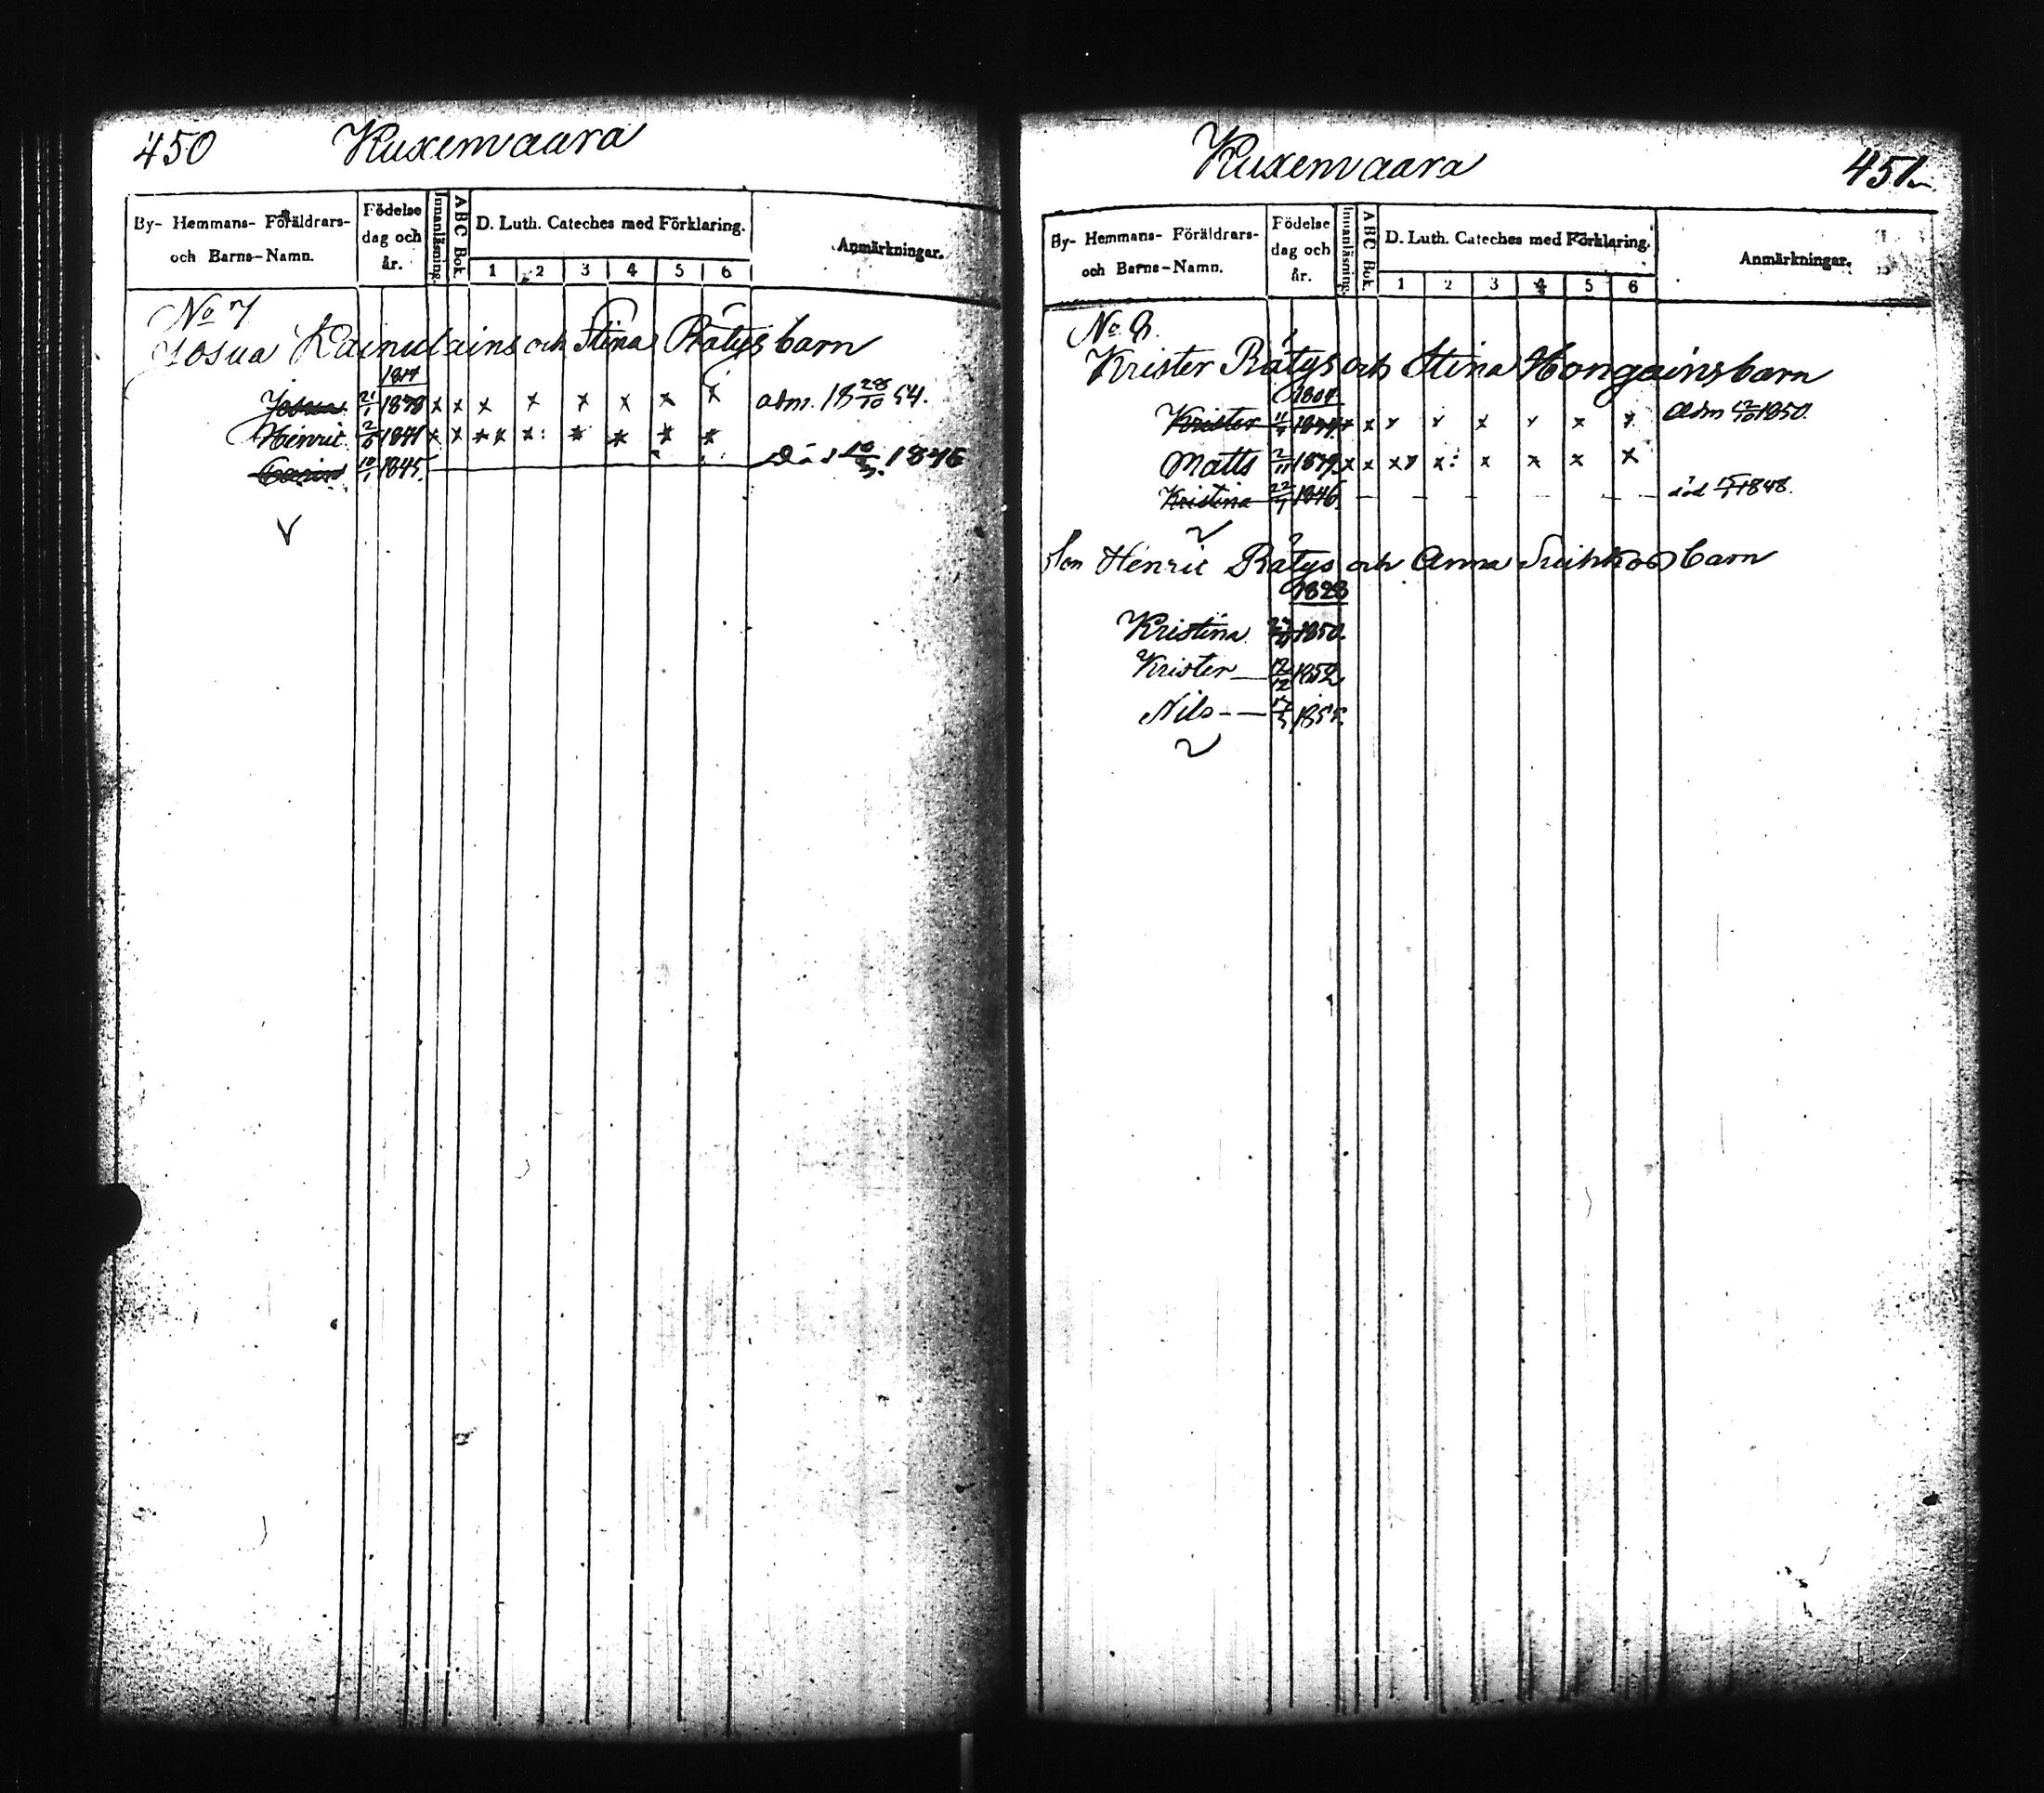 450 Kuxenvaara
By- Hemmans- Föräldrars- och Barns-Namn.
Födelse dag och år.
Innanläsning.
ABC Bok.
D. Luth. Cateches med Förklaring.
1 2 3 4 5 6
Anmärkningar.
No 7
Josua Kainulains och Stina Rätys barn
1817
Josua 21/1 1838 x x x x x x x x adm. 18 28/10 54.
Henric 1841 x x x x x: x x x x
10/1 1845. Död 10/3 1846
Kuxenvaara 451
By- Hemmans- Föräldrars- och Barns-Namn.
Födelse dag och år.
Innanläsning.
ABC Bok.
D. Luth. Cateches med Förklaring.
1 2 3 4 5 6
Anmärkningar.
No 8.
Krister Rätys och Stina Hongainsbarn
1801
Krister x x x x x x x x Adm 1850.
Matts 2/11 1839 x x x x x: x x x x
Kristina 22/1 1846. död 1848.
Son Henric Rätys och Anna Suihkos barn
1828
Kristina 1850.
Krister 12/12 1852
Nils 1855.